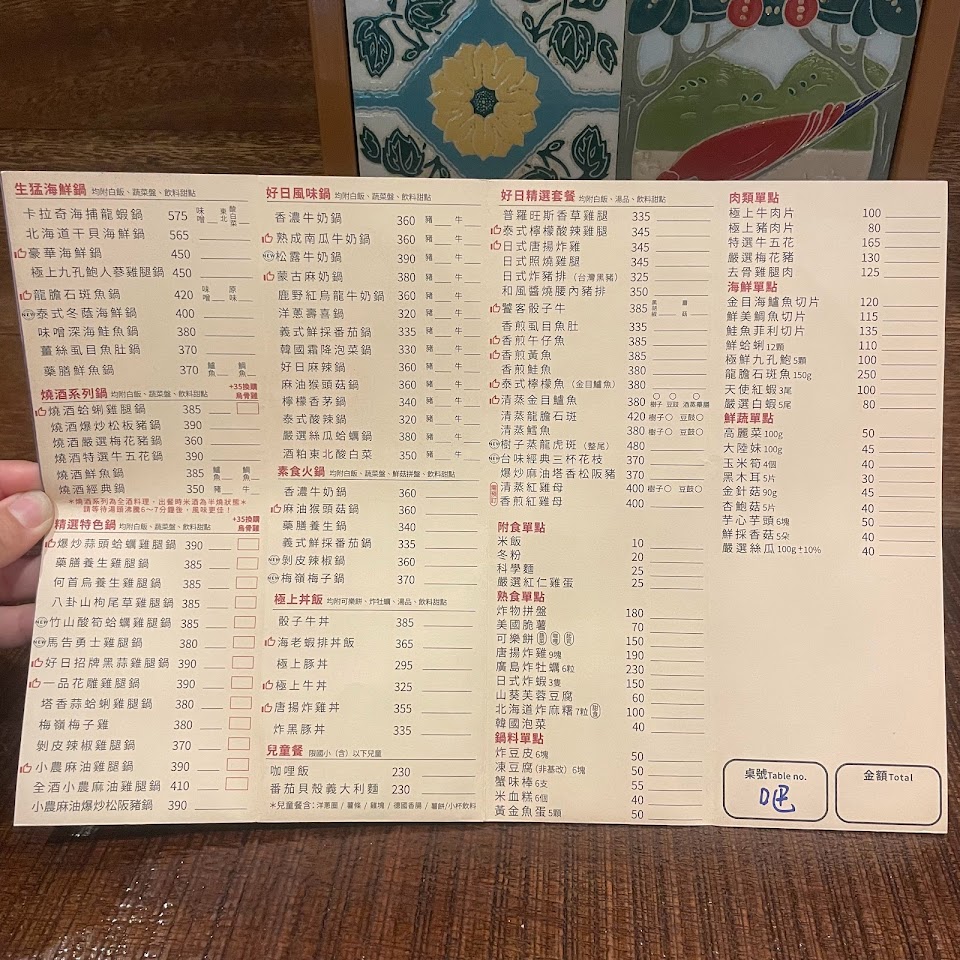 生猛海鮮鍋 均附白飯、蔬菜盤、飲料甜點
卡拉奇海捕龍蝦鍋 575 味噌 東北酸白菜
北海道干貝海鮮鍋 565
豪華海鮮鍋 450
極上九孔鮑人蔘雞腿鍋 450
龍膽石斑魚鍋 420 味噌 原味
NEW 泰式冬蔭海鮮鍋 400
味噌深海鮭魚鍋 380
薑絲虱目魚肚鍋 370
藥膳鮮魚鍋 370 鱸魚 鯛魚
燒酒系列鍋 均附白飯、蔬菜盤、飲料甜點 +35換購烏骨雞
燒酒蛤蜊雞腿鍋 385
燒酒爆炒松板豬鍋 390
燒酒嚴選梅花豬鍋 360
燒酒特選牛五花鍋 390
燒酒鮮魚鍋 385 鱸魚 鯛魚
燒酒經典鍋 350 豬 牛
*燒酒系列為全酒料理，出餐時米酒為半燒狀態*
請等待湯頭沸騰6~7分鐘後，風味更佳！
精選特色鍋 均附白飯、蔬菜盤、飲料甜點 +35換購烏骨雞
爆炒蒜頭蛤蠣雞腿鍋 390
藥膳養生雞腿鍋 385
何首烏養生雞腿鍋 385
八卦山枸尾草雞腿鍋 385
NEW 竹山酸筍蛤蠣雞腿鍋 385
NEW 馬告勇士雞腿鍋 380
好日招牌黑蒜雞腿鍋 390
一品花雕雞腿鍋 390
塔香蒜蛤蜊雞腿鍋 390
梅嶺梅子雞 380
剝皮辣椒雞腿鍋 370
小農麻油雞腿鍋 390
全酒小農麻油雞腿鍋 410
小農麻油爆炒松阪豬鍋 390
好日風味鍋 均附白飯、蔬菜盤、飲料甜點
香濃牛奶鍋 360 豬 牛
熟成南瓜牛奶鍋 360 豬 牛
NEW 松露牛奶鍋 390 豬 牛
蒙古麻奶鍋 380 豬 牛
鹿野紅烏龍牛奶鍋 360 豬 牛
洋蔥壽喜鍋 320 豬 牛
義式鮮採番茄鍋 335 豬 牛
韓國霜降泡菜鍋 330 豬 牛
好日麻辣鍋 360 豬 牛
麻油猴頭菇鍋 360 豬 牛
檸檬香茅鍋 340 豬 牛
泰式酸辣鍋 320 豬 牛
嚴選絲瓜蛤蠣鍋 380 豬 牛
酒粕東北酸白菜 350 豬 牛
素食火鍋 均附白飯、蔬菜盤、鮮菇拼盤、飲料甜點
香濃牛奶鍋 360
麻油猴頭菇鍋 360
藥膳養生鍋 340
義式鮮採番茄鍋 335
NEW 剝皮辣椒鍋 360
NEW 梅嶺梅子鍋 370
極上丼飯 均附可樂餅、炸牡蠣、湯品、飲料甜點
骰子牛丼 385
海老蝦排丼飯 365
極上豚丼 295
極上牛丼 325
唐揚炸雞丼 355
炸黑豚丼 335
兒童餐 限國小（含）以下兒童
咖哩飯 230
番茄貝殼義大利麵 230
*兒童餐含：洋蔥圈 / 薯條 / 雞塊 / 德國香腸 / 薯餅/小杯飲料
好日精選套餐 均附白飯、湯品、飲料甜點
普羅旺斯香草雞腿 335
泰式檸檬酸辣雞腿 345
日式唐揚炸雞 345
日式照燒雞腿 345
日式炸豬排（台灣黑豬）325
和風醬燒腰內豬排 350
饕客骰子牛 385
香煎虱目魚肚 335
香煎牛仔魚 385
香煎黃魚 385
香煎鮭魚 380
泰式檸檬魚（金目鱸魚）380
清蒸金目鱸魚 380 樹子 豆豉 清蒸藥膳
清蒸龍膽石斑 420 樹子 豆豉
清蒸鱈魚 380 樹子 豆豉
NEW 樹子蒸龍虎斑（整尾）480
NEW 台味經典三杯花枝 370
爆炒麻油塔香松阪豬 370
清蒸紅雞母 400 樹子 豆豉
香煎紅雞母 400
附食單點
米飯 10
冬粉 20
科學麵 25
嚴選紅仁雞蛋 25
熟食單點
炸物拼盤 180
美國脆薯 70
可樂餅 150
唐揚炸雞 9塊 190
廣島炸牡蠣 6粒 230
日式炸蝦 3隻 150
山葵芙蓉豆腐 60
北海道炸麻糬 7粒 100
韓國泡菜 40
鍋料單點
炸豆皮 6塊 50
凍豆腐(非基改) 6塊 50
蟹味棒 6支 55
米血糕 6個 40
黃金魚蛋 5顆 50
肉類單點
極上牛肉片 100
極上豬肉片 80
特選牛五花 165
嚴選梅花豬 130
去骨雞腿肉 125
海鮮單點
金目海鱸魚切片 120
鮮美鯛魚切片 115
鮭魚菲利切片 135
鮮蛤蜊 12顆 110
極鮮九孔鮑 5顆 100
龍膽石斑魚 150g 250
天使紅蝦 3尾 100
嚴選白蝦 5尾 80
鮮蔬單點
高麗菜 100g 50
大陸妹 100g 45
玉米筍 4個 40
黑木耳 5片 30
金針菇 90g 45
杏鮑菇 5片 40
芋心芋頭 6塊 50
鮮採香菇 5朵 40
嚴選絲瓜 100g ±10% 40
桌號Table no.
吧
金額Total